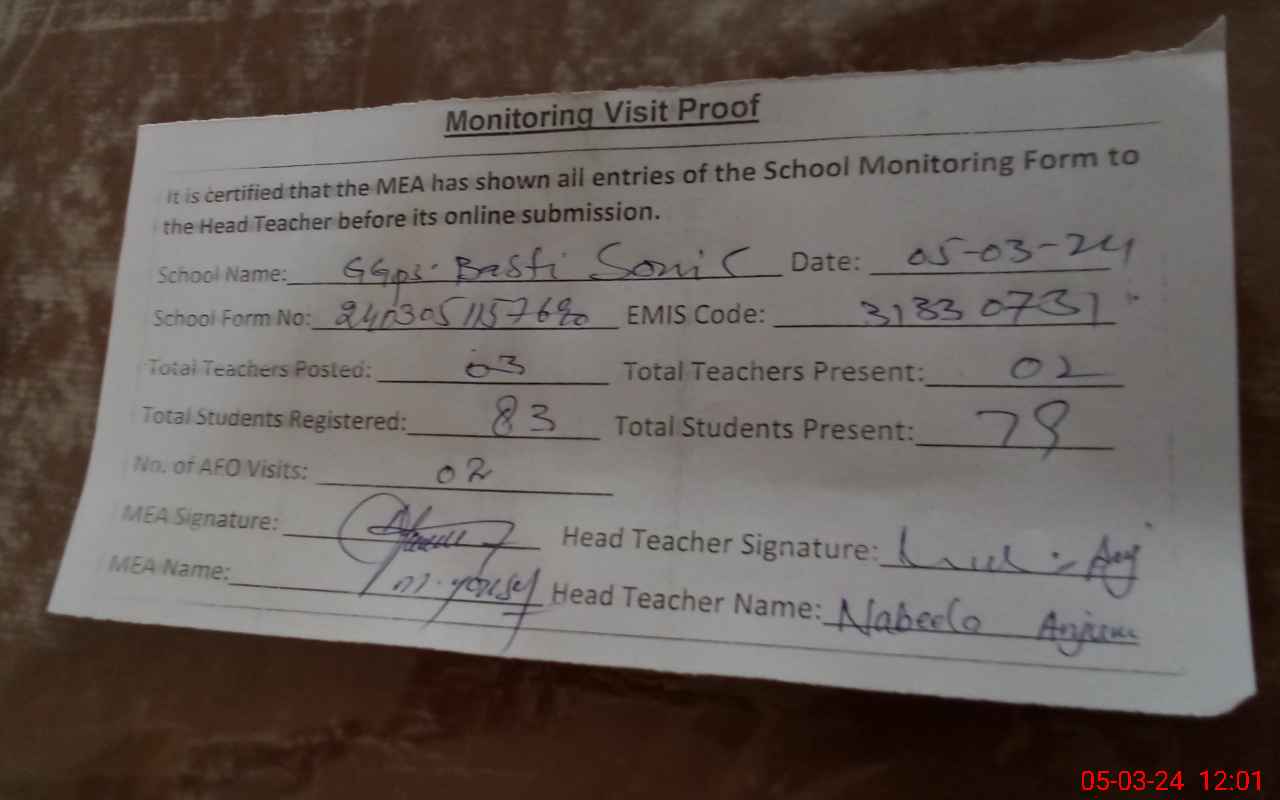 Monitoring Visit Proof
It is certified that the MEA has shown all entries of the School Monitoring Form to
the Head Teacher before its online submission.
School Name: GGps. Basti Date: 05-03-24
School Form No: EMIS Code: 31330731
Total Teachers Posted: 03 Total Teachers Present: 02
Total Students Registered: 83 Total Students Present: 79
No. of AFO Visits: 02
MEA Signature: Head Teacher Signature:
MEA Name: m. yousef Head Teacher Name: Nabeela Anjum
05-03-24 12:01